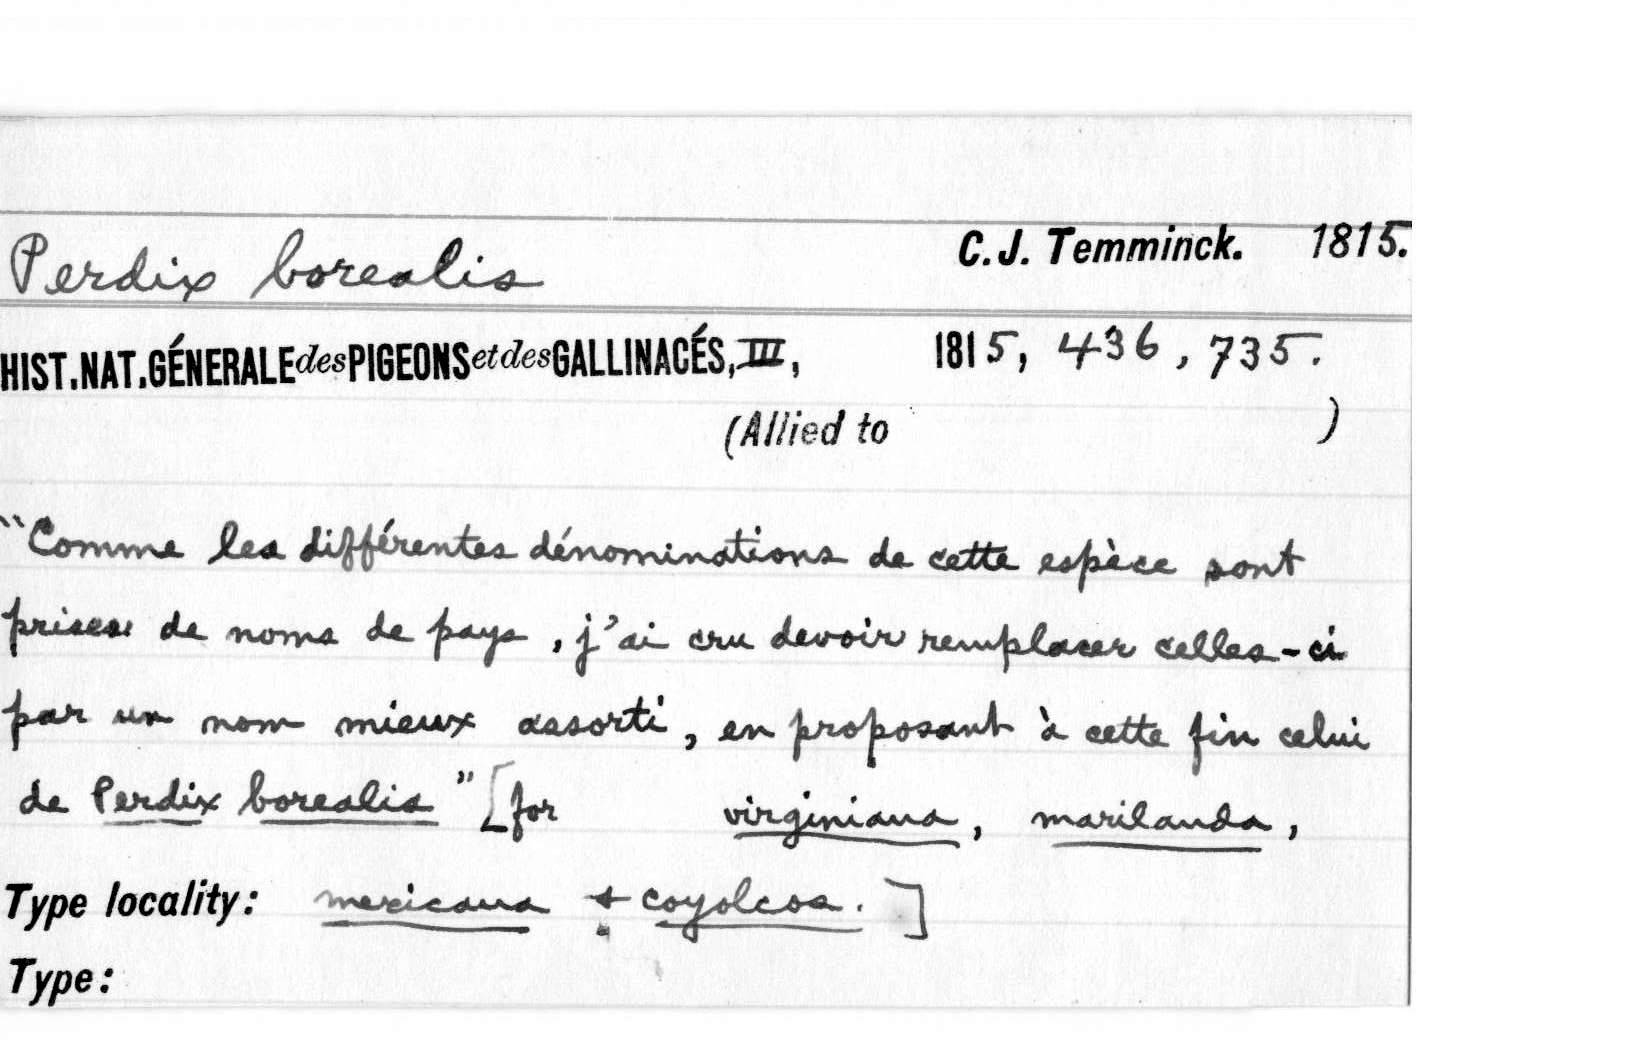 Perdix borealis C.J. Temminck. 1815.
HIST.NAT.GÉNERALE des PIGEONS et des GALLINACÉS, III, 1815, 436, 735.
(Allied to )
"Comme les différentes dénominations de cette espèce sont
prises de noms de pays, j'ai cru devoir remplacer celles-ci
par un nom mieux assorti, en proposant à cette fin celui
de Perdix borealis" [for virginiana, marilanda,
Type locality: mexicana + coyolcos.]
Type: